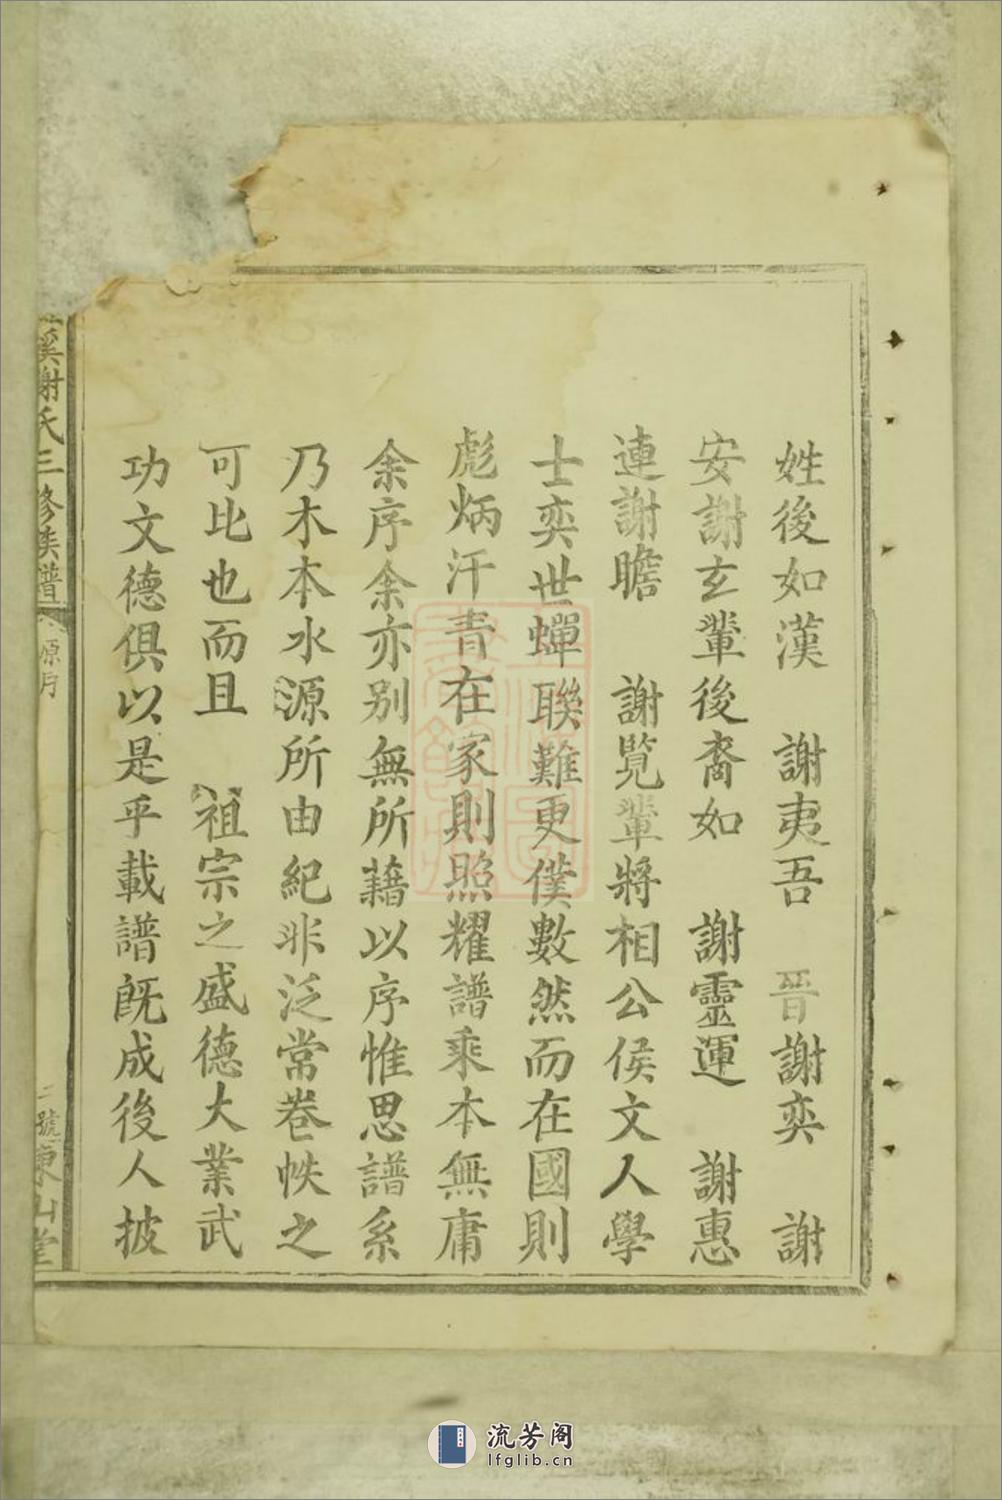 姓後如漢 謝夷吾 晉謝奕 謝
安謝玄輩後裔如 謝靈運 謝惠
連謝瞻 謝覽輩將相公侯文人學
士奕世蟬聯難更僕數然而在國則
彪炳汗青在家則照耀譜乘本無庸
余序余亦别無所藉以序惟思譜系
乃木本水源所由紀非泛常卷帙之
可比也而且 祖宗之盛德大業武
功文德俱以是乎載譜旣成後人披
溪謝氏三修族譜
原序
二號東山堂
流芳阁
lfglib.cn